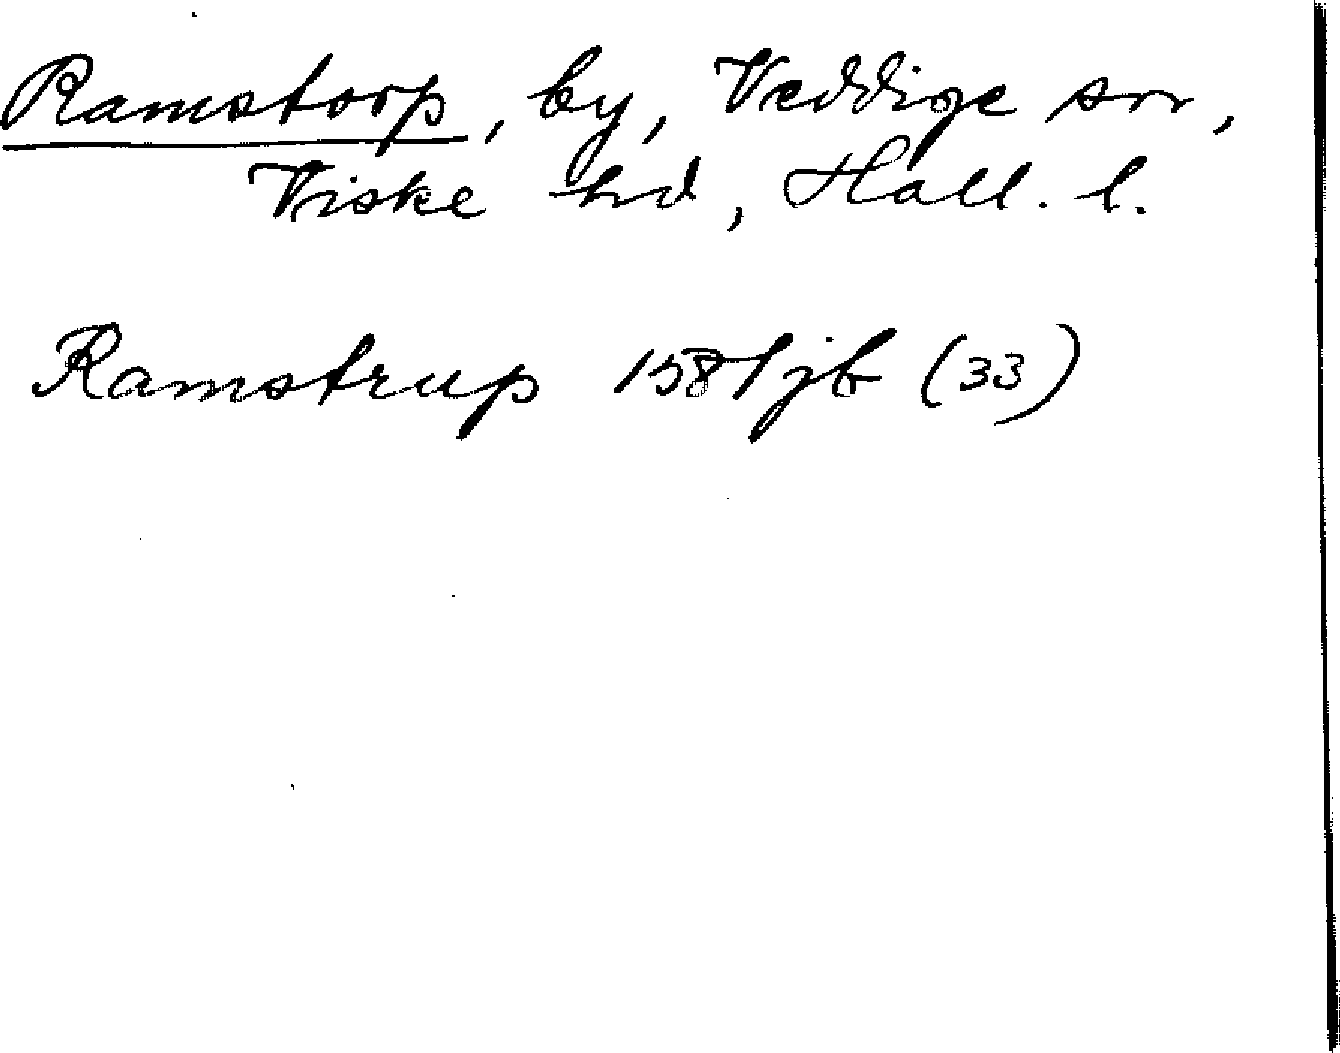 Ramstorp, by, Veddige sn,
Viske hd, Hall. l.
Ramstrup 1581 jb (33)